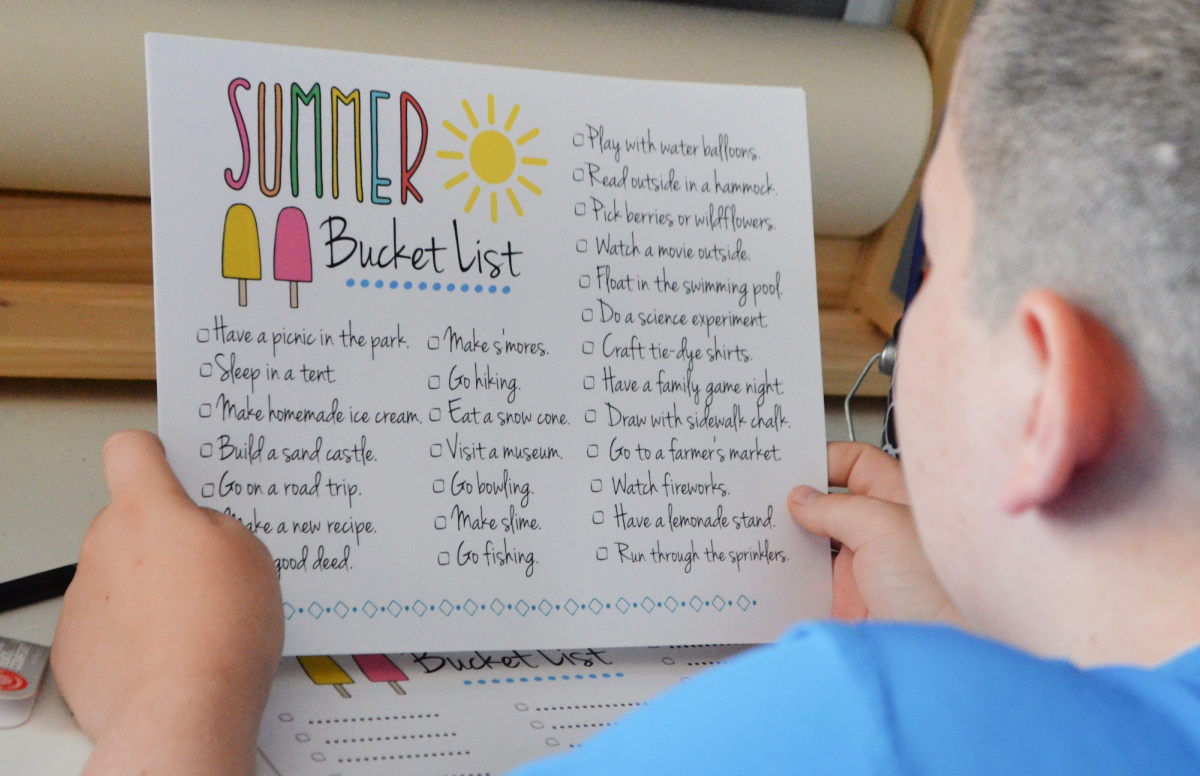 SUMMER
Bucket List
Have a picnic in the park.
Sleep in a tent.
Make homemade ice cream.
Build a sand castle.
Go on a road trip.
Make a new recipe.
good deed.
Make s'mores.
Go hiking.
Eat a snow cone.
Visit a museum.
Go bowling.
Make slime.
Go fishing.
Play with water balloons.
Read outside in a hammock.
Pick berries or wildflowers.
Watch a movie outside.
Float in the swimming pool.
Do a science experiment.
Craft tie-dye shirts.
Have a family game night.
Draw with sidewalk chalk.
Go to a farmer's market.
Watch fireworks.
Have a lemonade stand.
Run through the sprinklers.
Bucket List